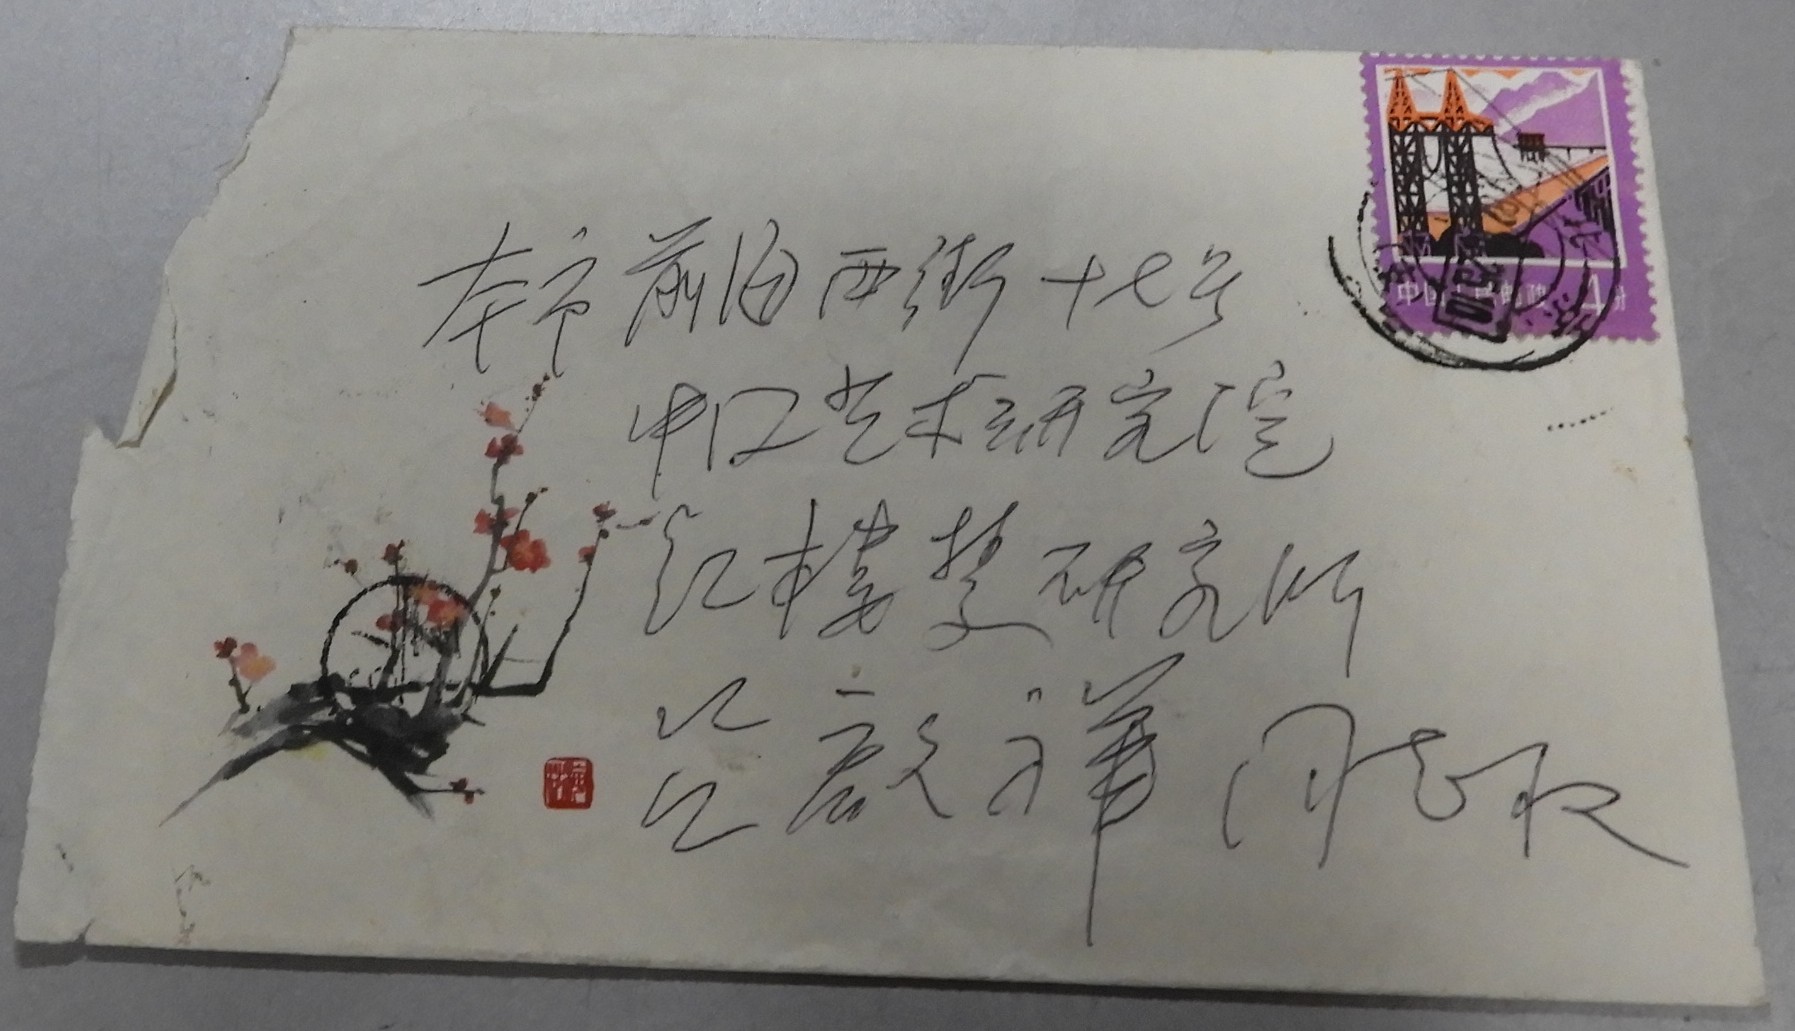 本市前海西街十七号
中国艺术研究院
红楼梦研究所
吕启祥同志收
中国人民邮政 4分